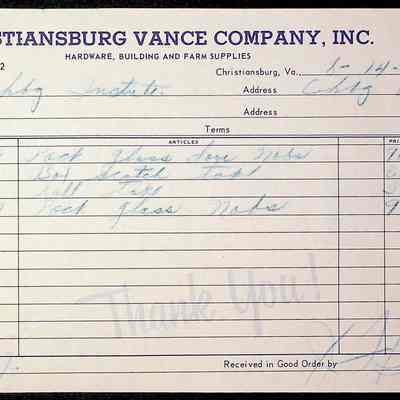 STIANSBURG VANCE COMPANY, INC.
HARDWARE, BUILDING AND FARM SUPPLIES
2
Christiansburg, Va. 1-14-
hbg Institute Address Chbg
Address
Terms
ARTICLES PRI
Rock Glass Dore Nobs
Box Scotch Tape
Roll Tape
Rock glass Nobs 9
Thank You!
Received in Good Order by